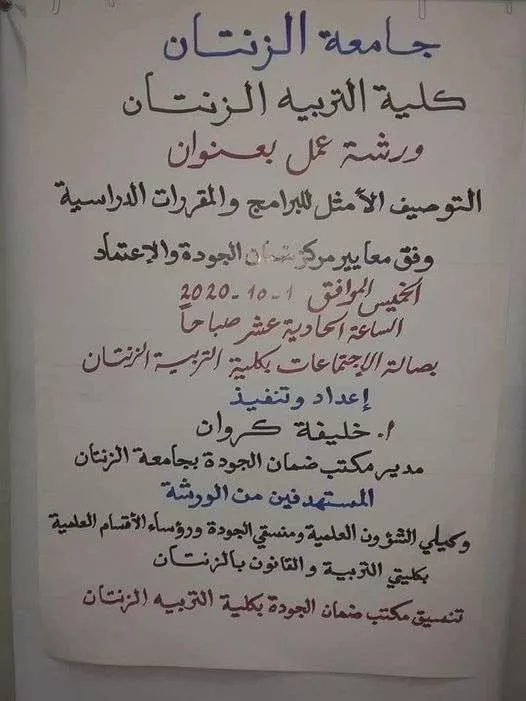 جامعة الزنتان
كلية التربيه الزنتان
ورشة عمل بعنوان
التوصيف الأمثل للبرامج والمقررات الدراسية
وفق معايير مركز ضمان الجودة والإعتماد
الخميس الموافق 1-10-2020
الساعة الحادية عشر صباحاً
بصالة الإجتماعات بكلية التربية الزنتان
إعداد وتنفيذ
أ. خليفة كروان
مدير مكتب ضمان الجودة بجامعة الزنتان
المستهدفين من الورشة
وكيلي الشؤون العلمية ومنسقي الجودة ورؤساء الأقسام العلمية
بكليتي التربية والقانون بالزنتان
تنسيق مكتب ضمان الجودة بكلية التربيه الزنتان